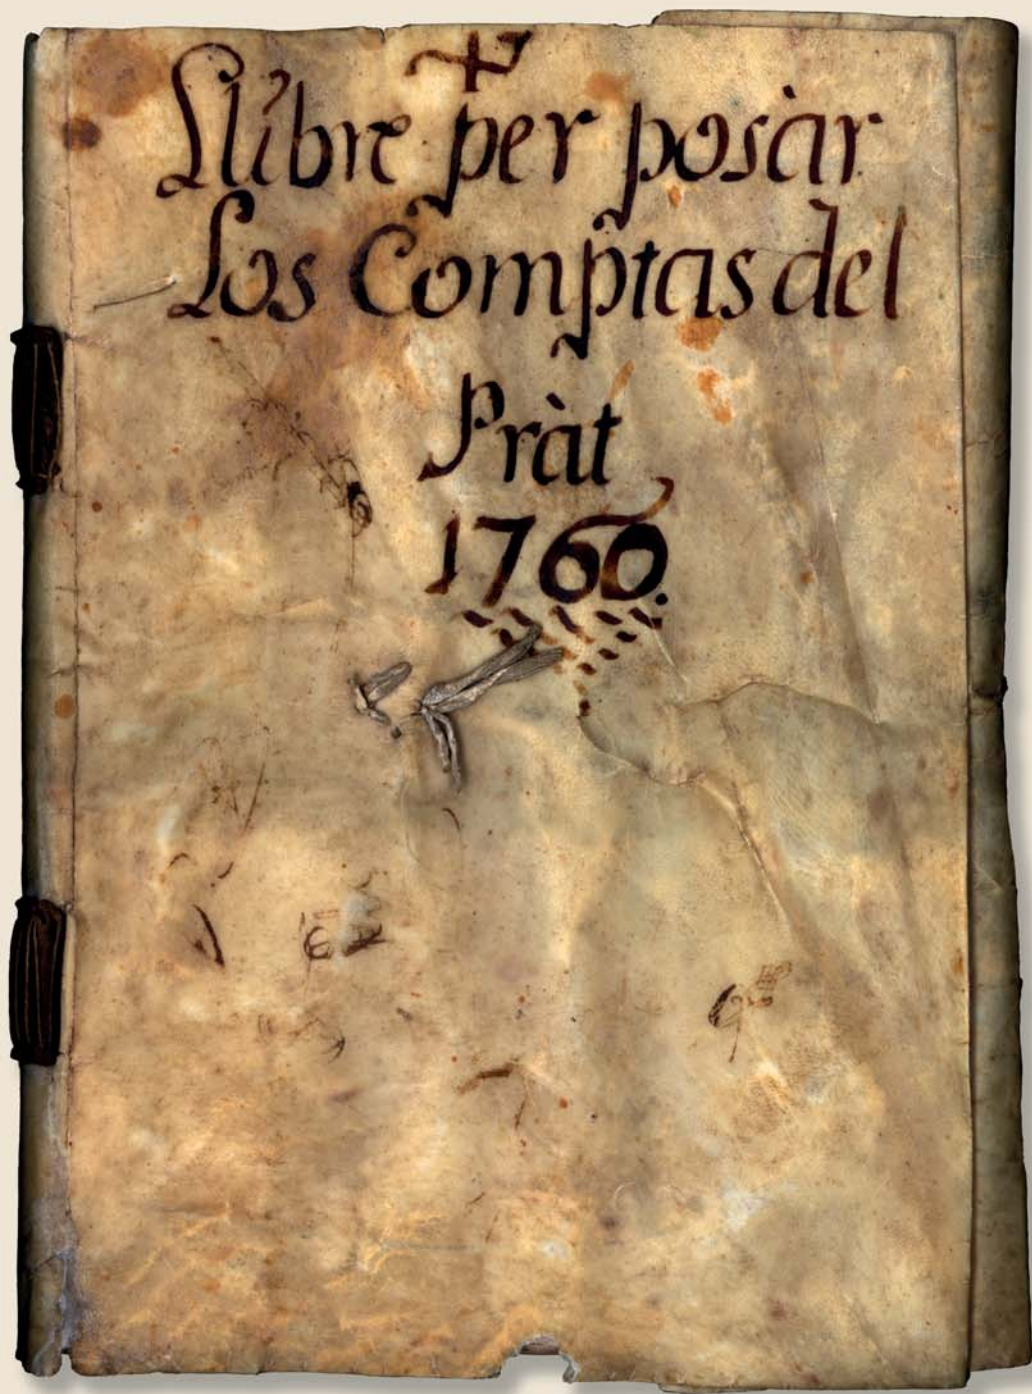 Llibre per posàr
Los Comptas del
Pràt
1760.